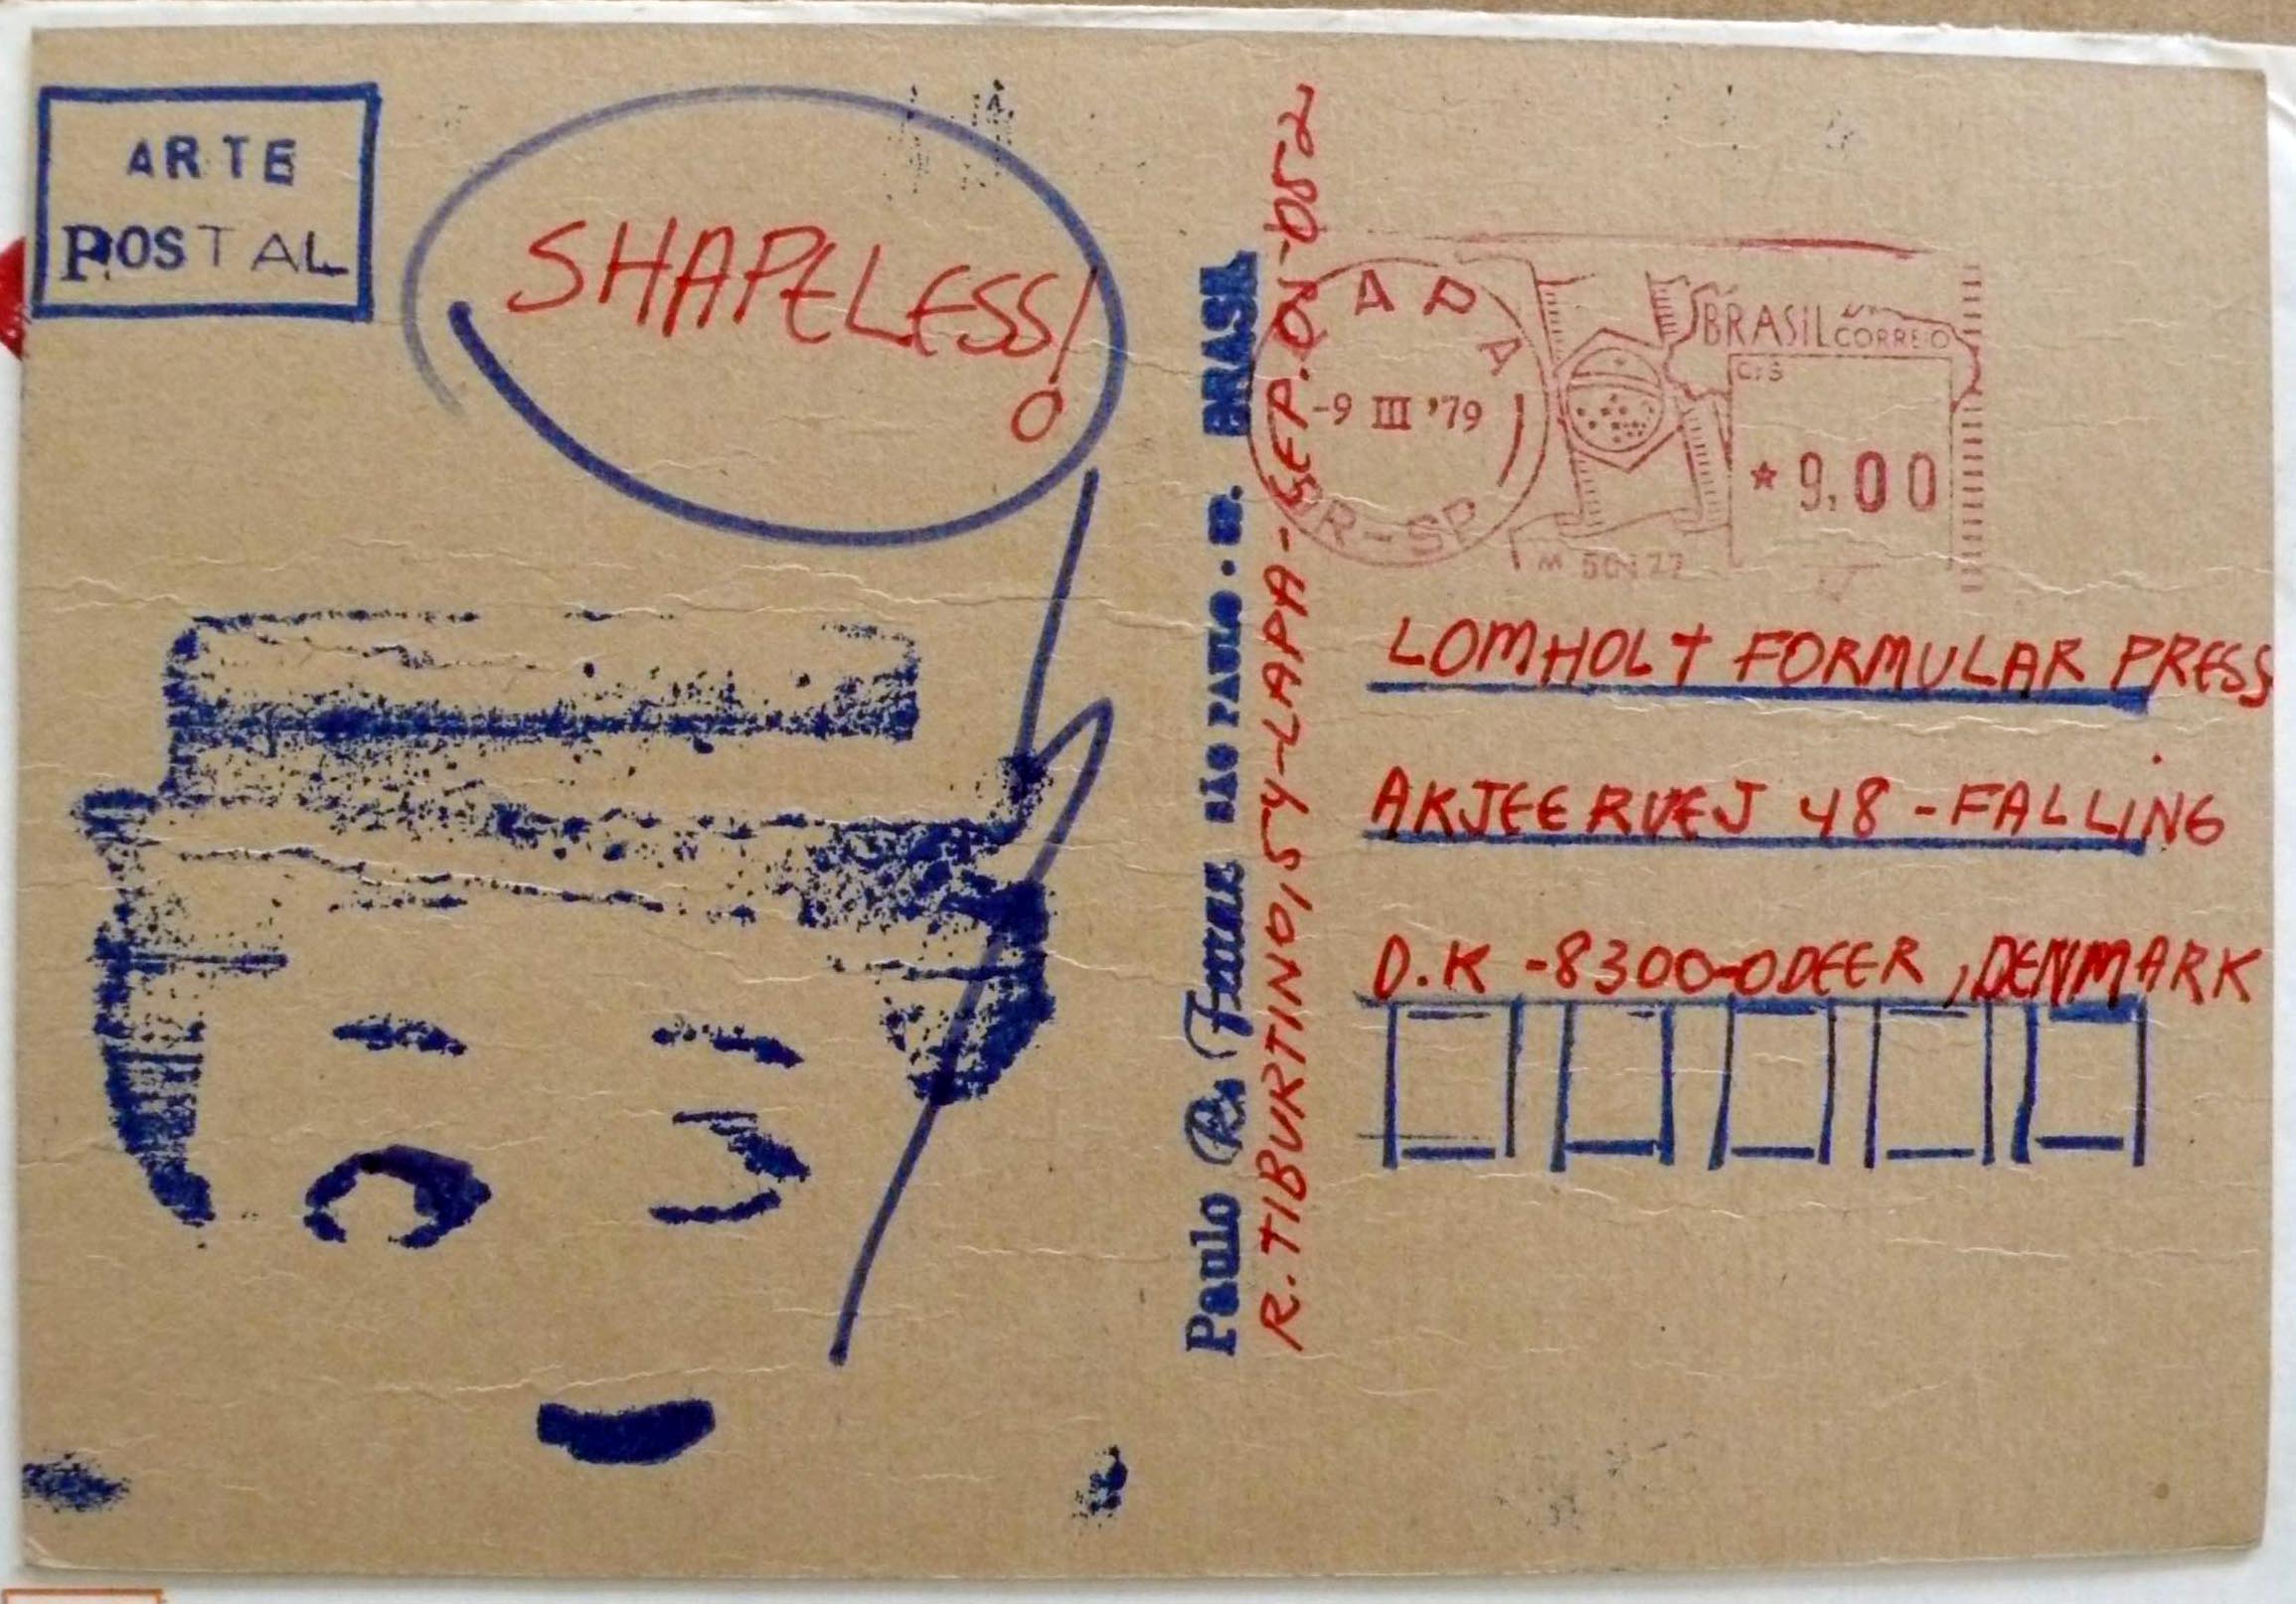 ARTE
POSTAL
SHAPELESS!
Paulo R. SÃO PAULO · SP. BRASIL
R. TIBURTINO, 54-LAPA-SEP. 05052
-9 III '79
R-SP
BRASIL CORREIO
CR$
* 9,00
M 50177
LOMHOLT FORMULAR PRESS
AKJEERVEJ 48 - FALLING
D.K -8300-ODEER, DENMARK